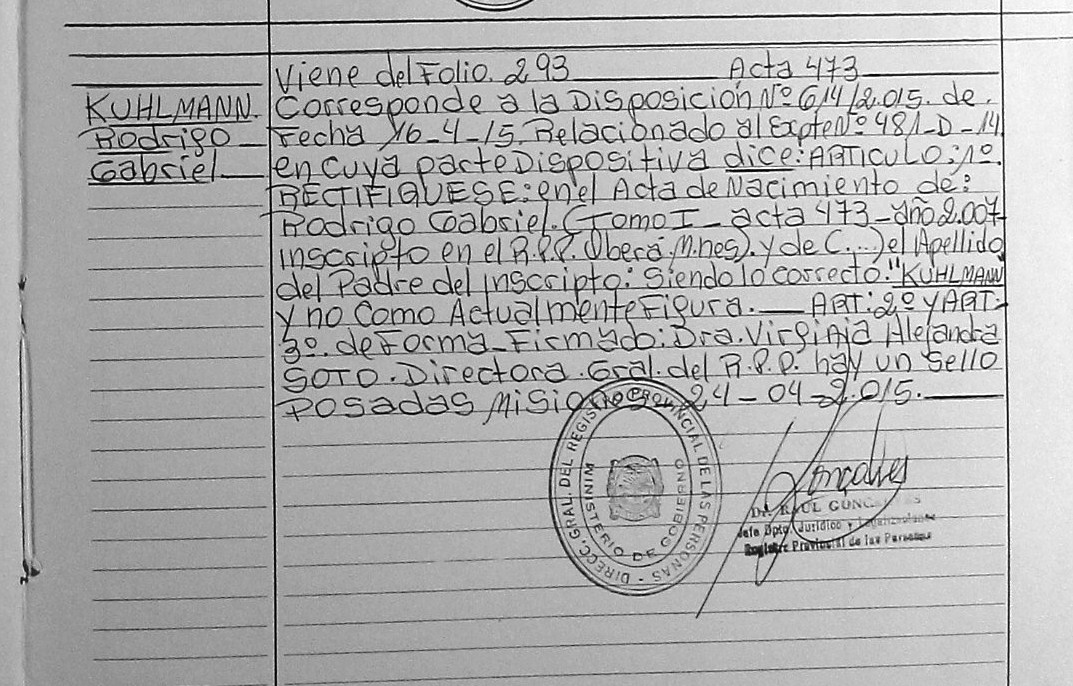 Viene del Folio. 293 Acta 473
KUHLMANN.
Rodrigo
Gabriel
Corresponde a la Disposicion Nº 614/2.015. de.
Fecha 16-4-15. Relacionado al Expte Nº 481-D-14
en cuya parte Dispositiva dice: ARTICULO: 1º.
RECTIFIQUESE: en el Acta de Nacimiento de:
Rodrigo Gabriel. (Tomo I_ acta 473_año 2.007
inscripto en el R.P.P. Oberá. M.nes). y de (...) el Apellido
del Padre del inscripto: Siendo lo correcto: "KUHLMANN"
y no Como Actualmente Figura. ART: 2º Y ART:
3º. de Forma_Firmado: Dra. Virginia Alejandra
SOTO. Directora. Gral. del R.P.P. hay un Sello
POSADAS Misiones 24-04-2.015.
DIRECC. GRAL. DEL REGISTRO PROVINCIAL DE LAS PERSONAS
MINISTERIO DE GOBIERNO
Dr. RAUL
Jefe Dpto. Jurídico y
Registro Provincial de las Personas